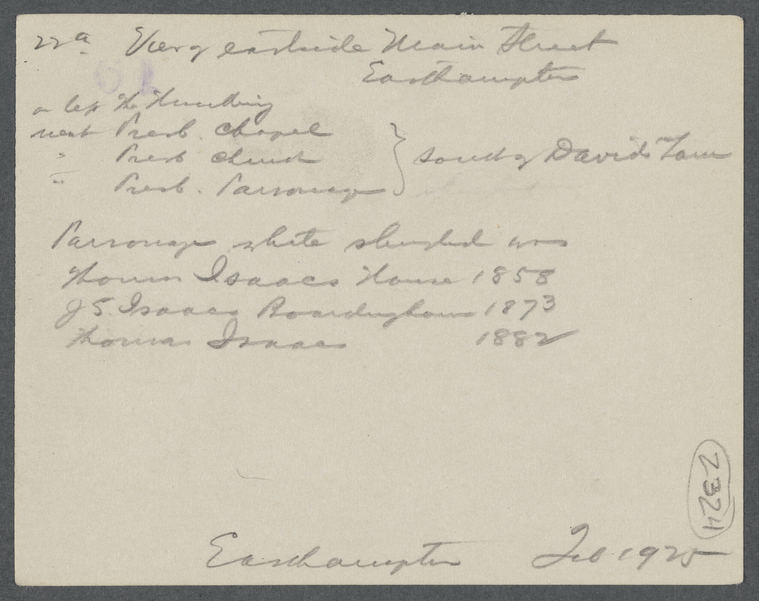 22a View eastside Main Street
Easthampton
61
on left The Huntting
next Presb. Chapel
" Presb church } south of Davids Lane
" Presb. Parsonage
Parsonage white shingled was
Thomas Isaacs House 1858
J S Isaacs Boardinghouse 1873
Thomas Isaacs 1882
2324
Easthampton Feb. 1925